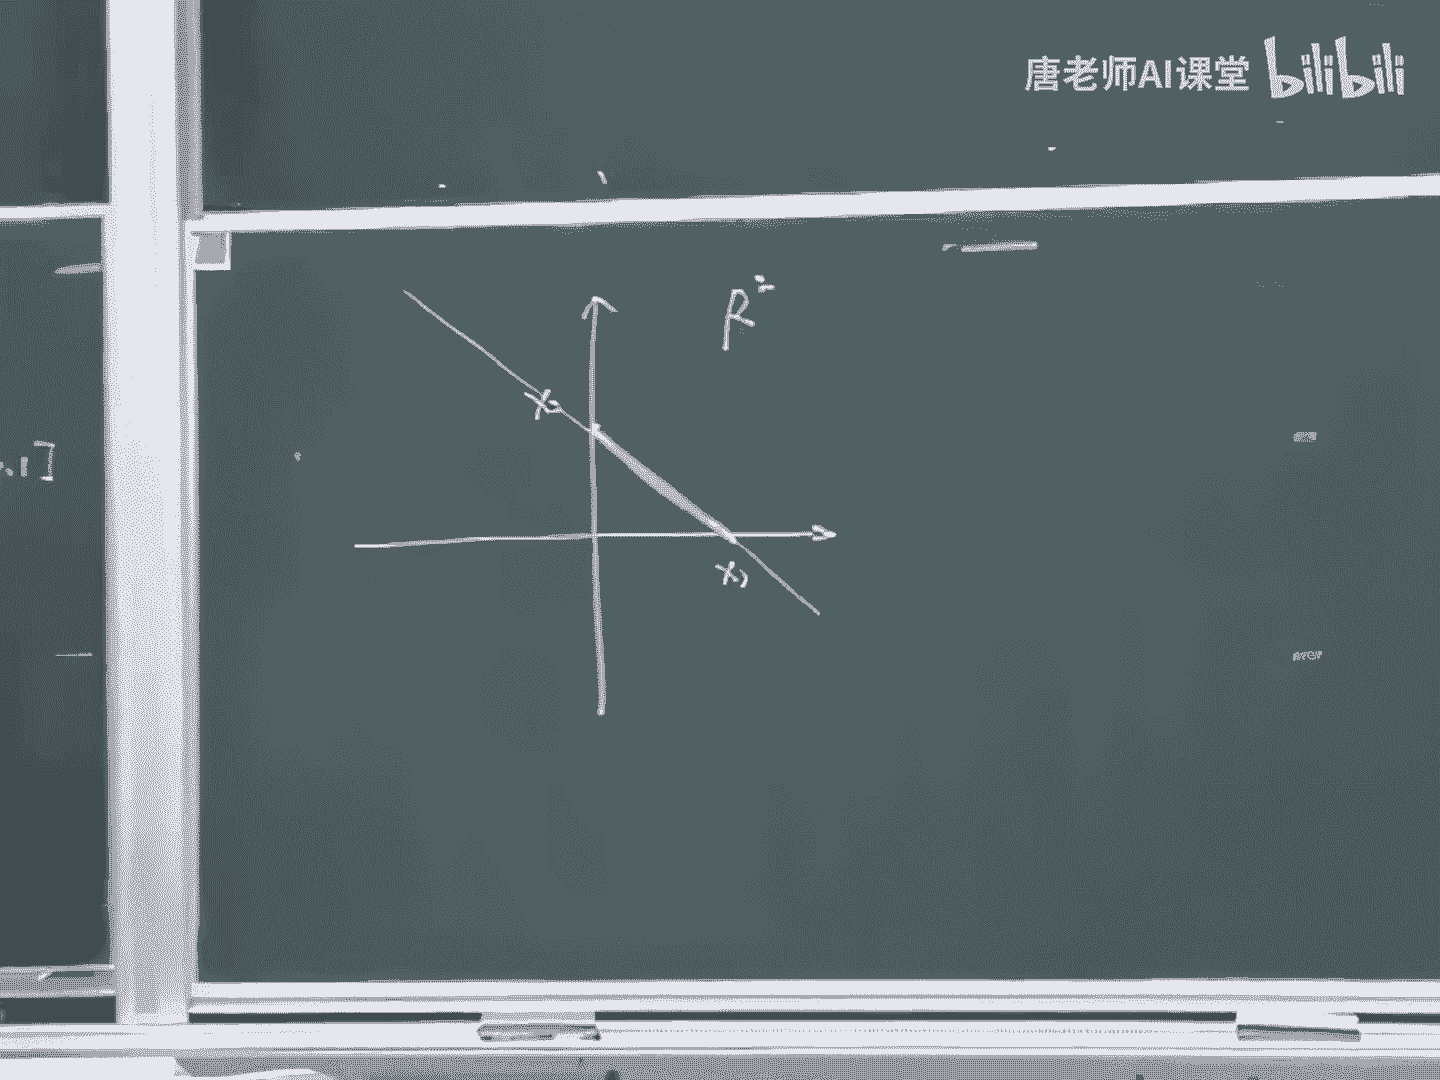 唐老师AI课堂 bilibili
R²
x₂
x₁